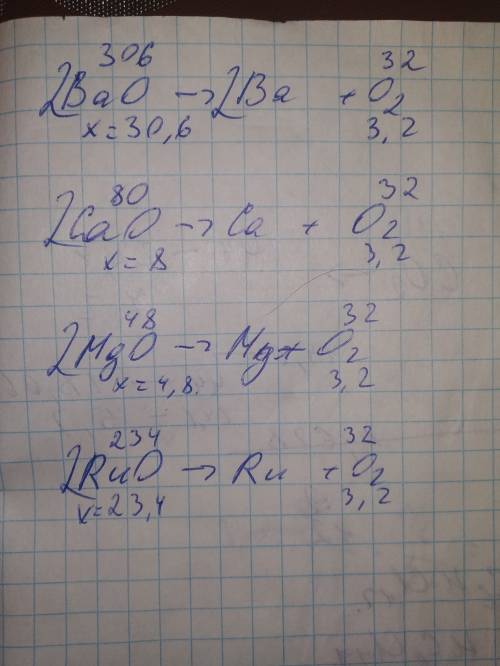 306 32
2BaO → 2Ba + O2
x=30,6 3,2
80 32
2CaO → Ca + O2
x=8 3,2
48 32
2MgO → Mg + O2
x=4,8. 3,2
234 32
2RuO → Ru + O2
x=23,4 3,2